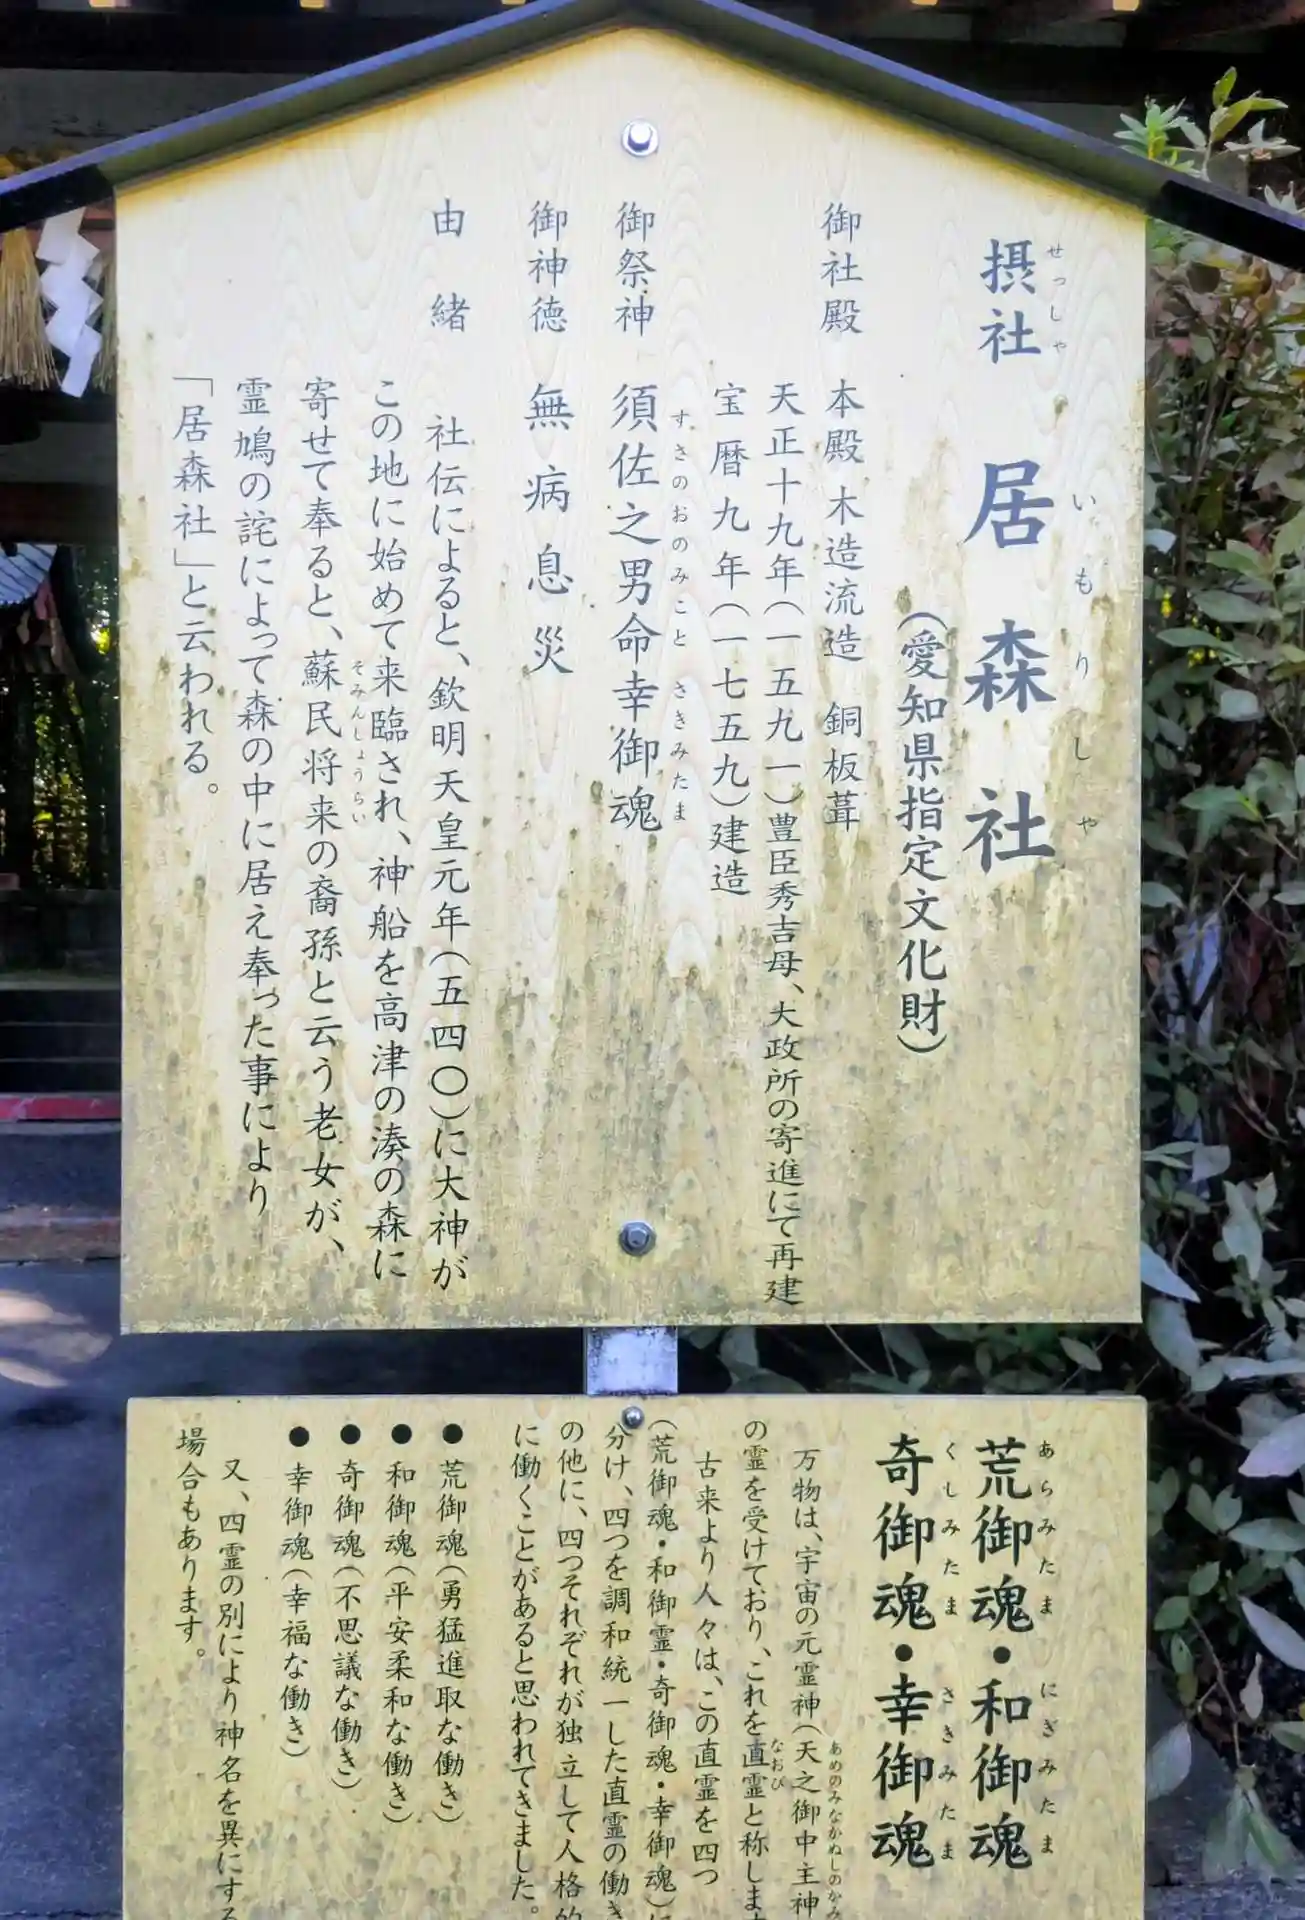 せっしゃ いもりしゃ
摂社 居森社
(愛知県指定文化財)
御社殿 本殿 木造流造 銅板葺
天正十九年(一五九一)豊臣秀吉母、大政所の寄進にて再建
宝暦九年(一七五九)建造
すさのおのみこと さきみたま
御祭神 須佐之男命幸御魂
御神徳 無病息災
由緒 社伝によると、欽明天皇元年(五四〇)に大神が
この地に始めて来臨され、神船を高津の湊の森に
そみんしょうらい
寄せて奉ると、蘇民将来の裔孫と云う老女が、
霊鳩の詫によって森の中に居え奉った事により
「居森社」と云われる。
あらみたま にぎみたま
荒御魂・和御魂
くしみたま さきみたま
奇御魂・幸御魂
あめのみなかぬしのかみ
万物は、宇宙の元霊神(天之御中主神
なおひ
の霊を受けており、これを直霊と称しま
古来より人々は、この直霊を四つ
(荒御魂・和御霊・奇御魂・幸御魂)に
分け、四つを調和統一した直霊の働き
の他に、四つそれぞれが独立して人格的
に働くことがあると思われてきました。
●荒御魂(勇猛進取な働き)
●和御魂(平安柔和な働き)
●奇御魂(不思議な働き)
●幸御魂(幸福な働き)
又、四霊の別により神名を異にする
場合もあります。